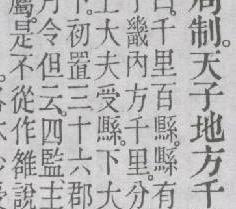 周制。天子地方千
千里百縣。縣有
畿內方千里。分
上大夫受縣。下大
初置三十六郡
令但云。四監主
是不從作雒說